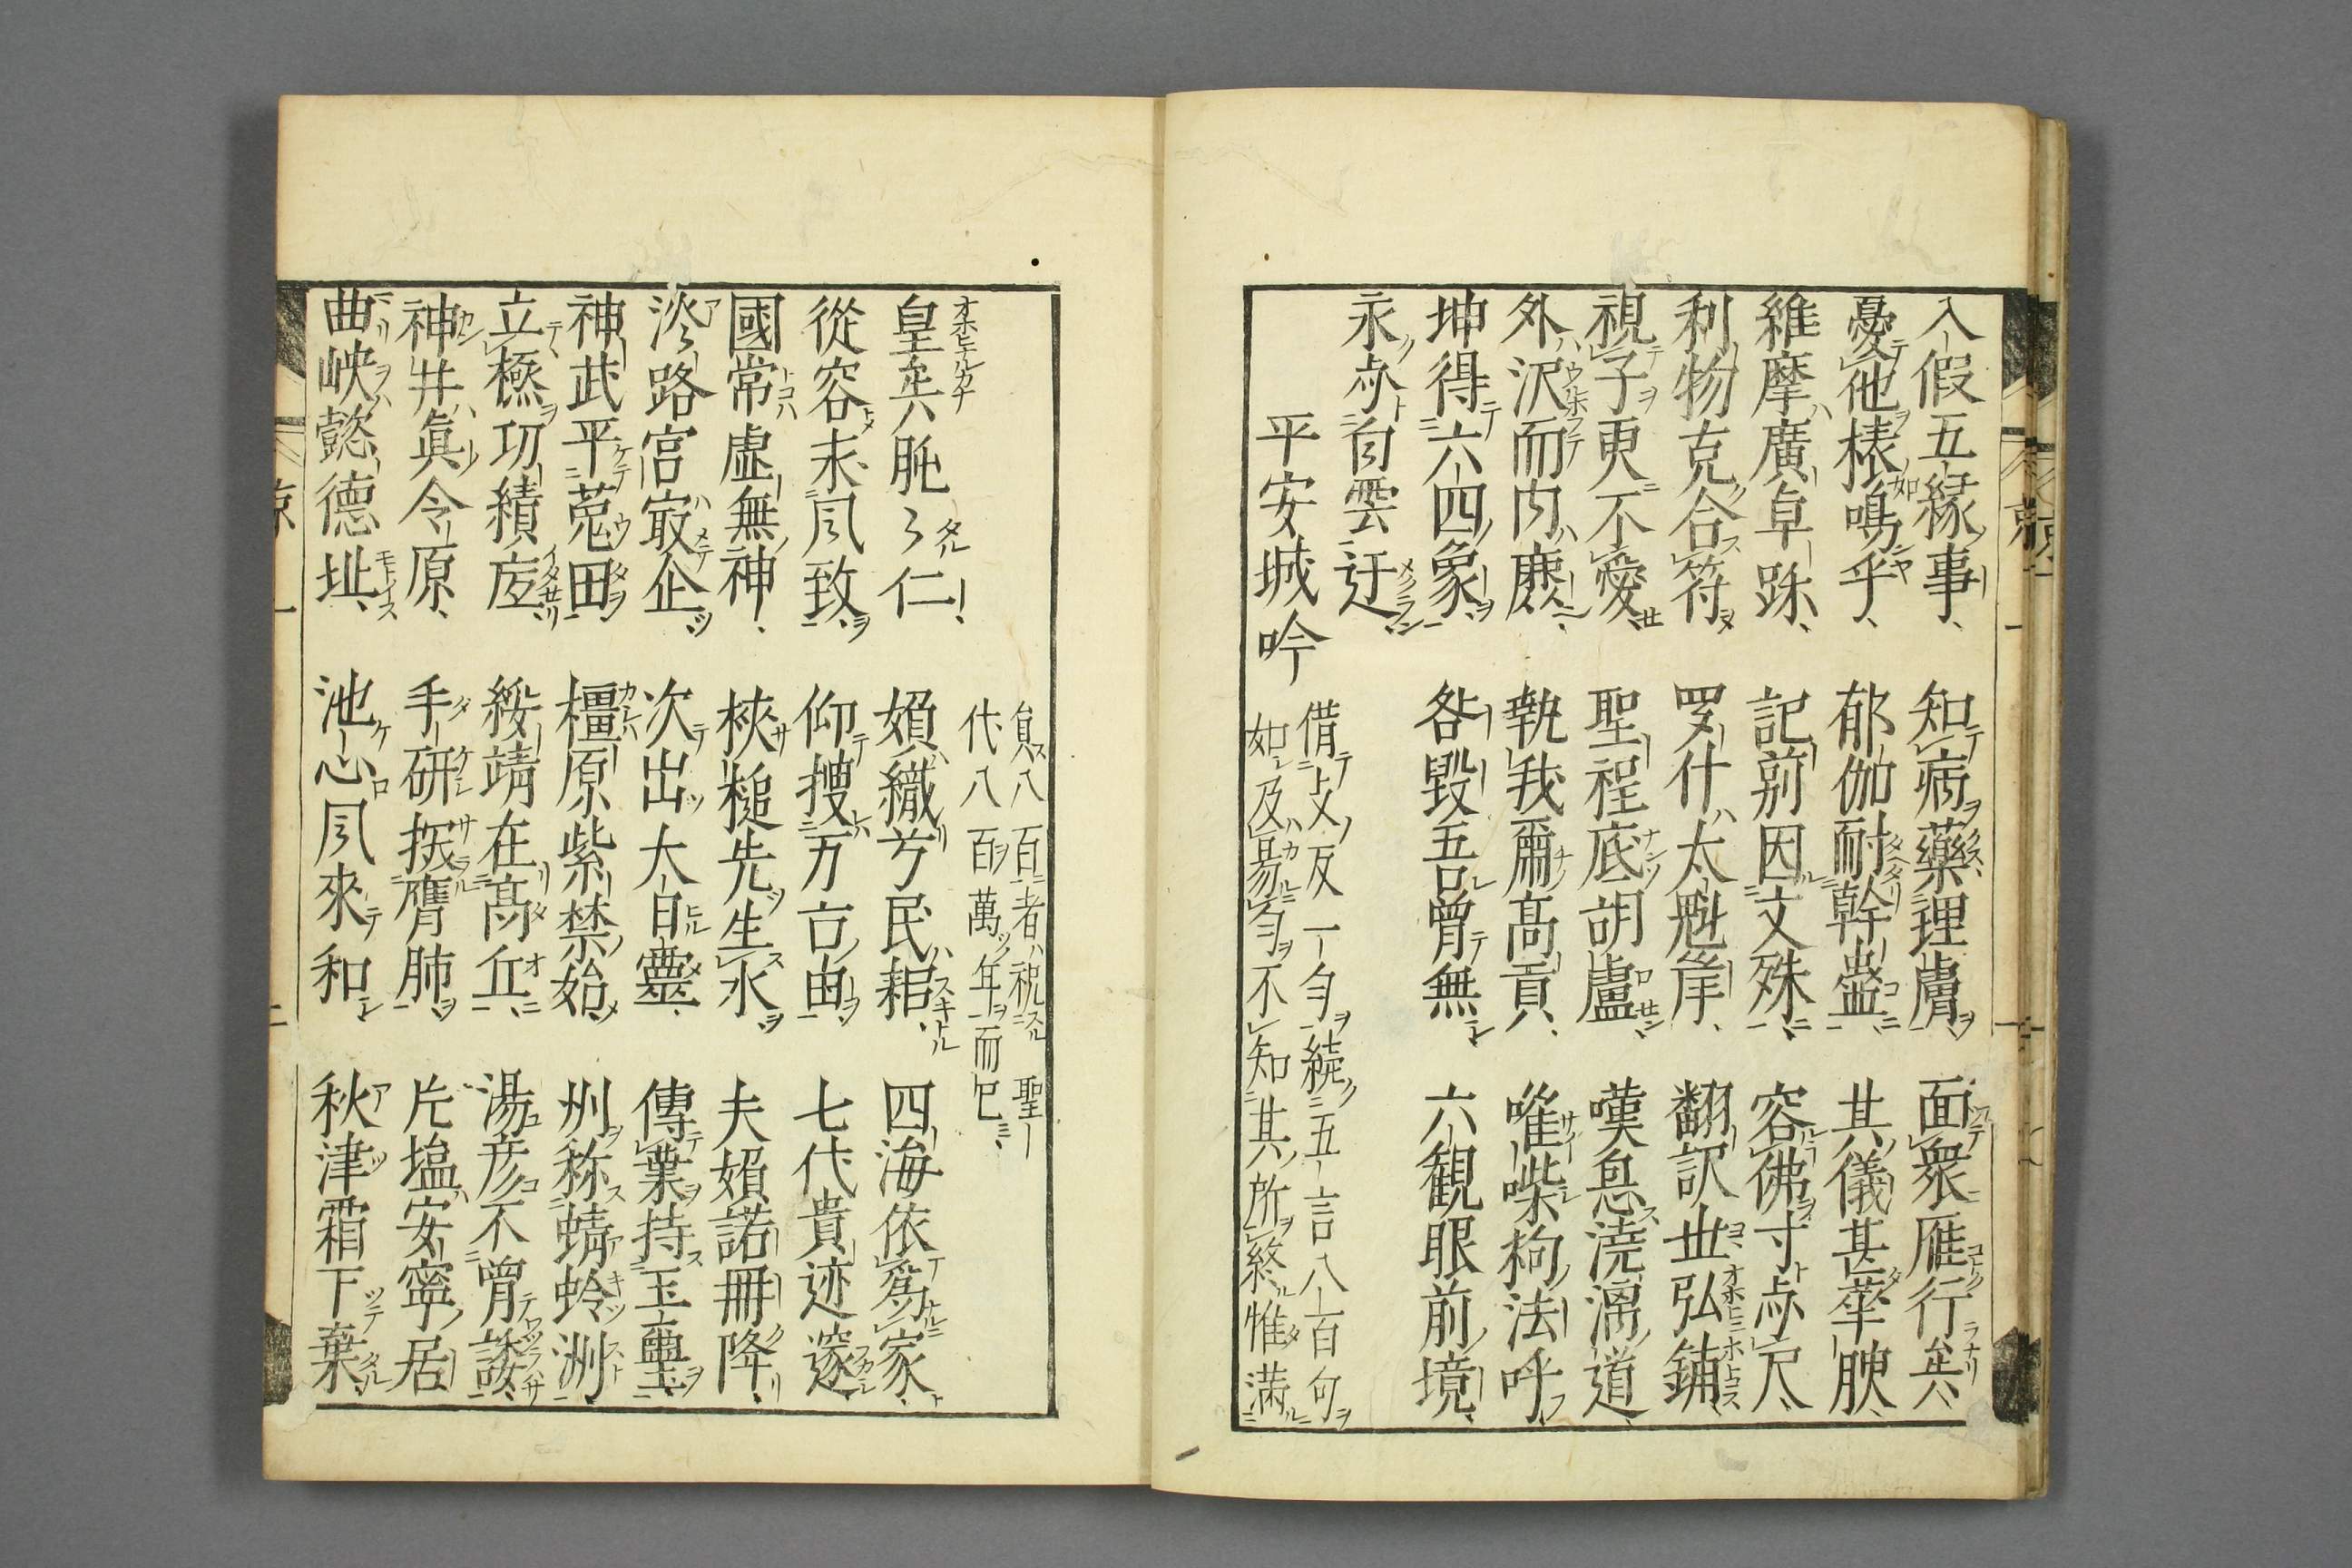 入假五緣事 知病藥理膚 面衆雁行矣
憂他樣鳴乎 郁伽耐幹蠱 其儀甚華腴
維摩廣卓跡 記莂因文殊 容佛寸亦尺
利物克合符 罗什太魁崖 翻訳世弘鋪
視子更不愛 聖程底胡盧 嘆息澆漓道
外沢而内麽 執我爾髙貢 唯喍枸法呼
坤得六四象 咎毀吾曽無 六観眼前境
永亦白雲迂
平安城吟
借攴反一勻続五言八百句
如及昜勻不知其所終惟満
貟八百者祝聖
代八百萬年而已
皇矣肫〻仁 嬪織兮民耜 四海依爲家
從容未风致 仰搜万古由 七代貴迹邃
國常虚無神 梜槌先生水 夫嬪諾冊降
淡路宮㝡企 次出大日靈 傳業持玉璽
神武平菟田 橿原紫禁始 州称蜻蛉洲
立極㓛績庢 綏靖在髙丘 湯彦不曽諉
神井眞令原 手研援膺肺 片塩安寧居
曲峡懿德址 池心风來和 秋津霜下葉